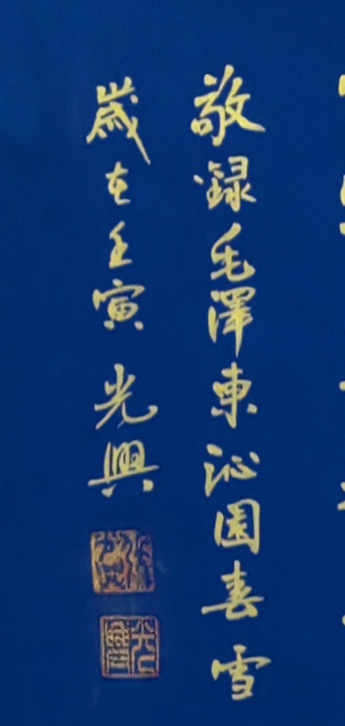 敬録毛澤東沁園春雪
歲在壬寅 光興